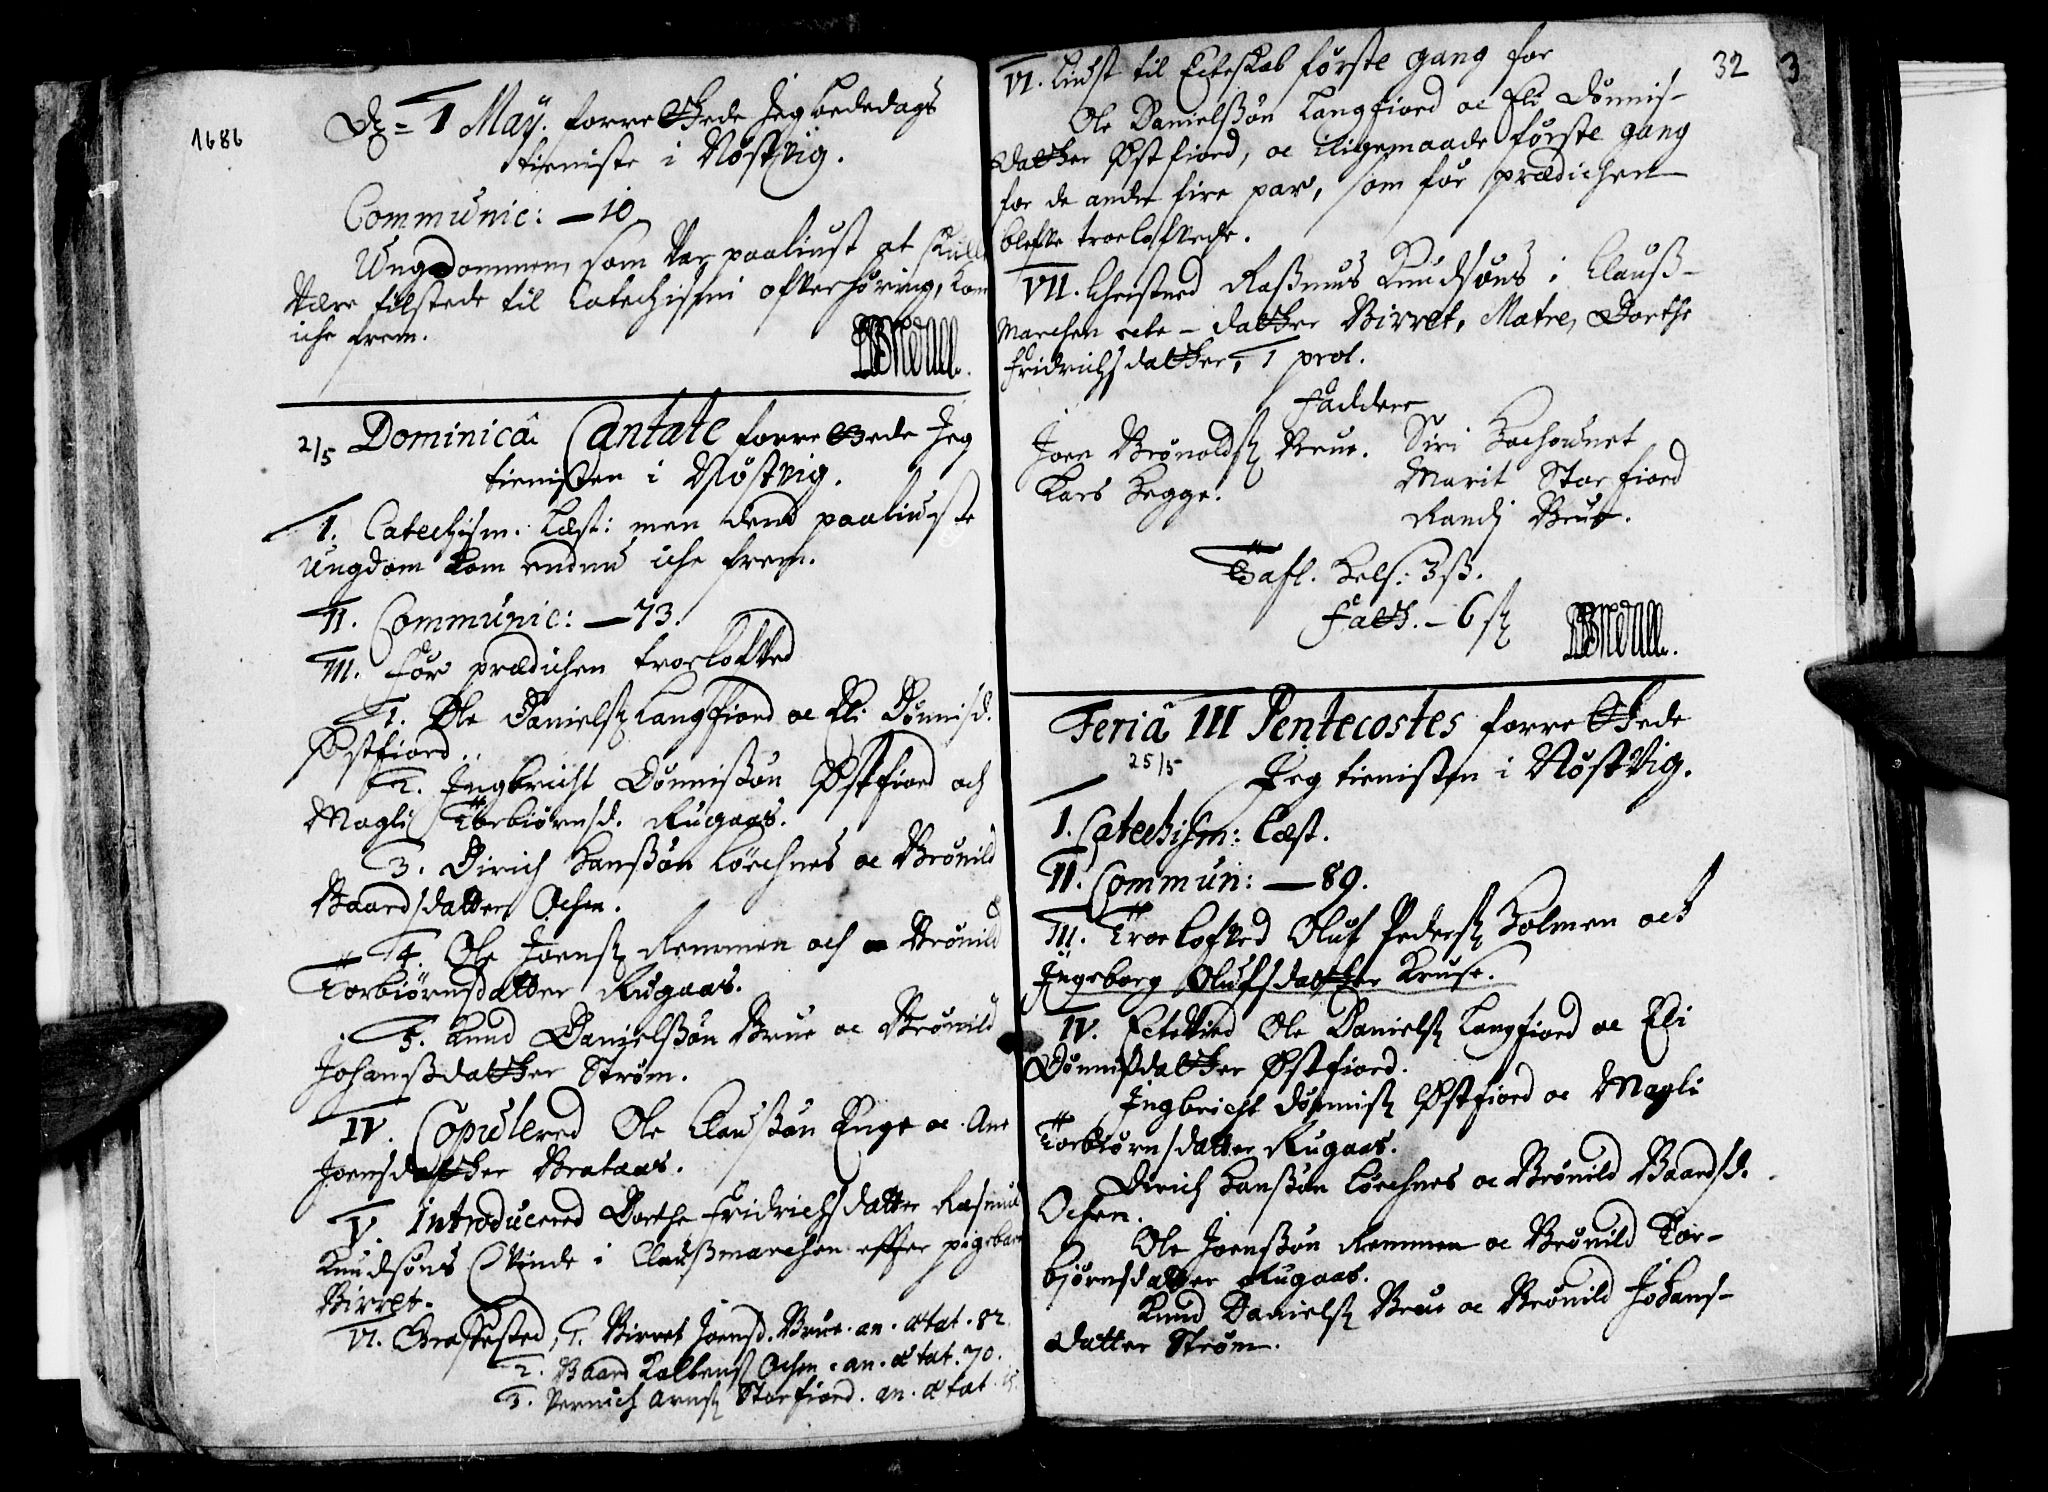 1686
D. 1 Maÿ. forrettede Jeg bededags
tieniste i Nøstvig.
Communic: — 10
Ungdommen, som var paaliust at skulle
være tilstede til Catechismi offverhøring, kom
iche frem.
2/5 Dominicâ Cantate forrettede Jeg
tienisten i Nøstvig.
I. Catechism. Læst: men dend paaliuste
Ungdom kom endnu iche frem.
II. Communic: — 73.
III. Før prædichen troelofved
1. Ole Daniels. Langfiord oc Eli Dønnisd.
Østfiord.
2. Ingbricht Dønnissøn Østfiord och
Magli Torbiørnsd. Rugaas.
3. Dirich Hanssøn Lørchnes oc Brønild
Baardsdatter Ochen.
4. Ole Joens. Remmen och Brønild
Torbiørnsdatter Rugaas.
5. Knud Danielssøn Brue oc Brønild
Johanssdatter Strøm.
IV. Copulered Ole Claussøn Enge oc Ane
Joensdatter Brataas.
V. Introducered Dorthe Fridrichsdatter Rasmus
Knudsøns Qvinde i Claussmarchen effter pigebarn
Birret.
VI. Graffested, 1. Birret Joensd. Brue. an. ætat. 82
2. Baard Ochen. an. ætat. 70.
3. Arns. Storfiord. an. ætat.
32
3
VI. Liust til Ecteskab første gang for
Ole Danielssøn Langfiord oc Eli Dønnis-
datter Østfiord, oc lligemaade første gang
for de andre fire par, som før prædichen
blefve troelofvede.
VII. Christned Rasmus Knudsøns i Clauss-
marchen ecte-datter Birret, Matre, Dorthe
Fridrichsdatter, 1 prol.
Faddere
Joen Brønolds. Brue. Siri Bachownet
Lars Hegge. Marit Storfiord
Randj Brue.
Tafl. Bels: 3 ß.
Fatt. - 6 ß
Feriâ III Pentecostes forrettede
25/5
Jeg tienisten i Nøstvig.
I. Catechism: Læst.
II. Commun: — 89.
III. Troelofved Oluf Peders. Holmen och
Ingeborg Olufsdatter Kruse.
IV. Ectevied Ole Daniels. Langfiord oc Eli
Dønnisdatter Østfiord.
Ingbricht Dønnis. Østfiord oc Magli
Torbiørnsdatter Rugaas.
Dirich Hanssøn Lørchnes oc Brønild Baardsd.
Ochen.
Ole Joenssøn Remmen oc Brønild Tor-
bjørnsdatter Rugaas.
Knud Daniels. Brue oc Brønild Johans-
datter Strøm.